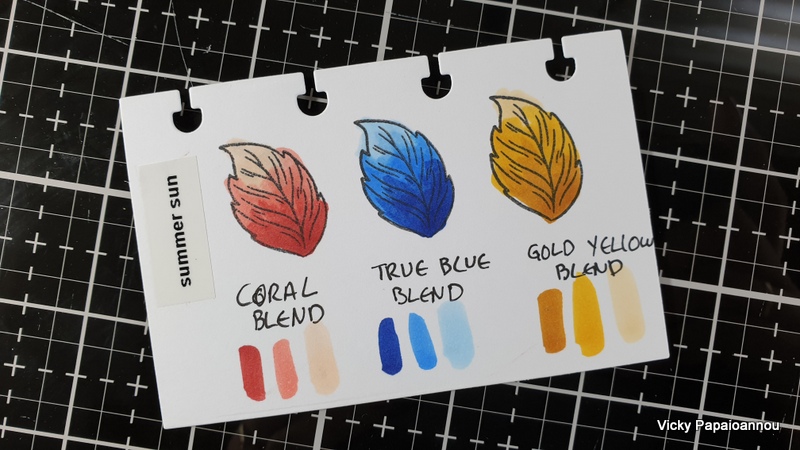 summer sun
CORAL
BLEND
TRUE BLUE
BLEND
GOLD YELLOW
BLEND
Vicky Papaioannou